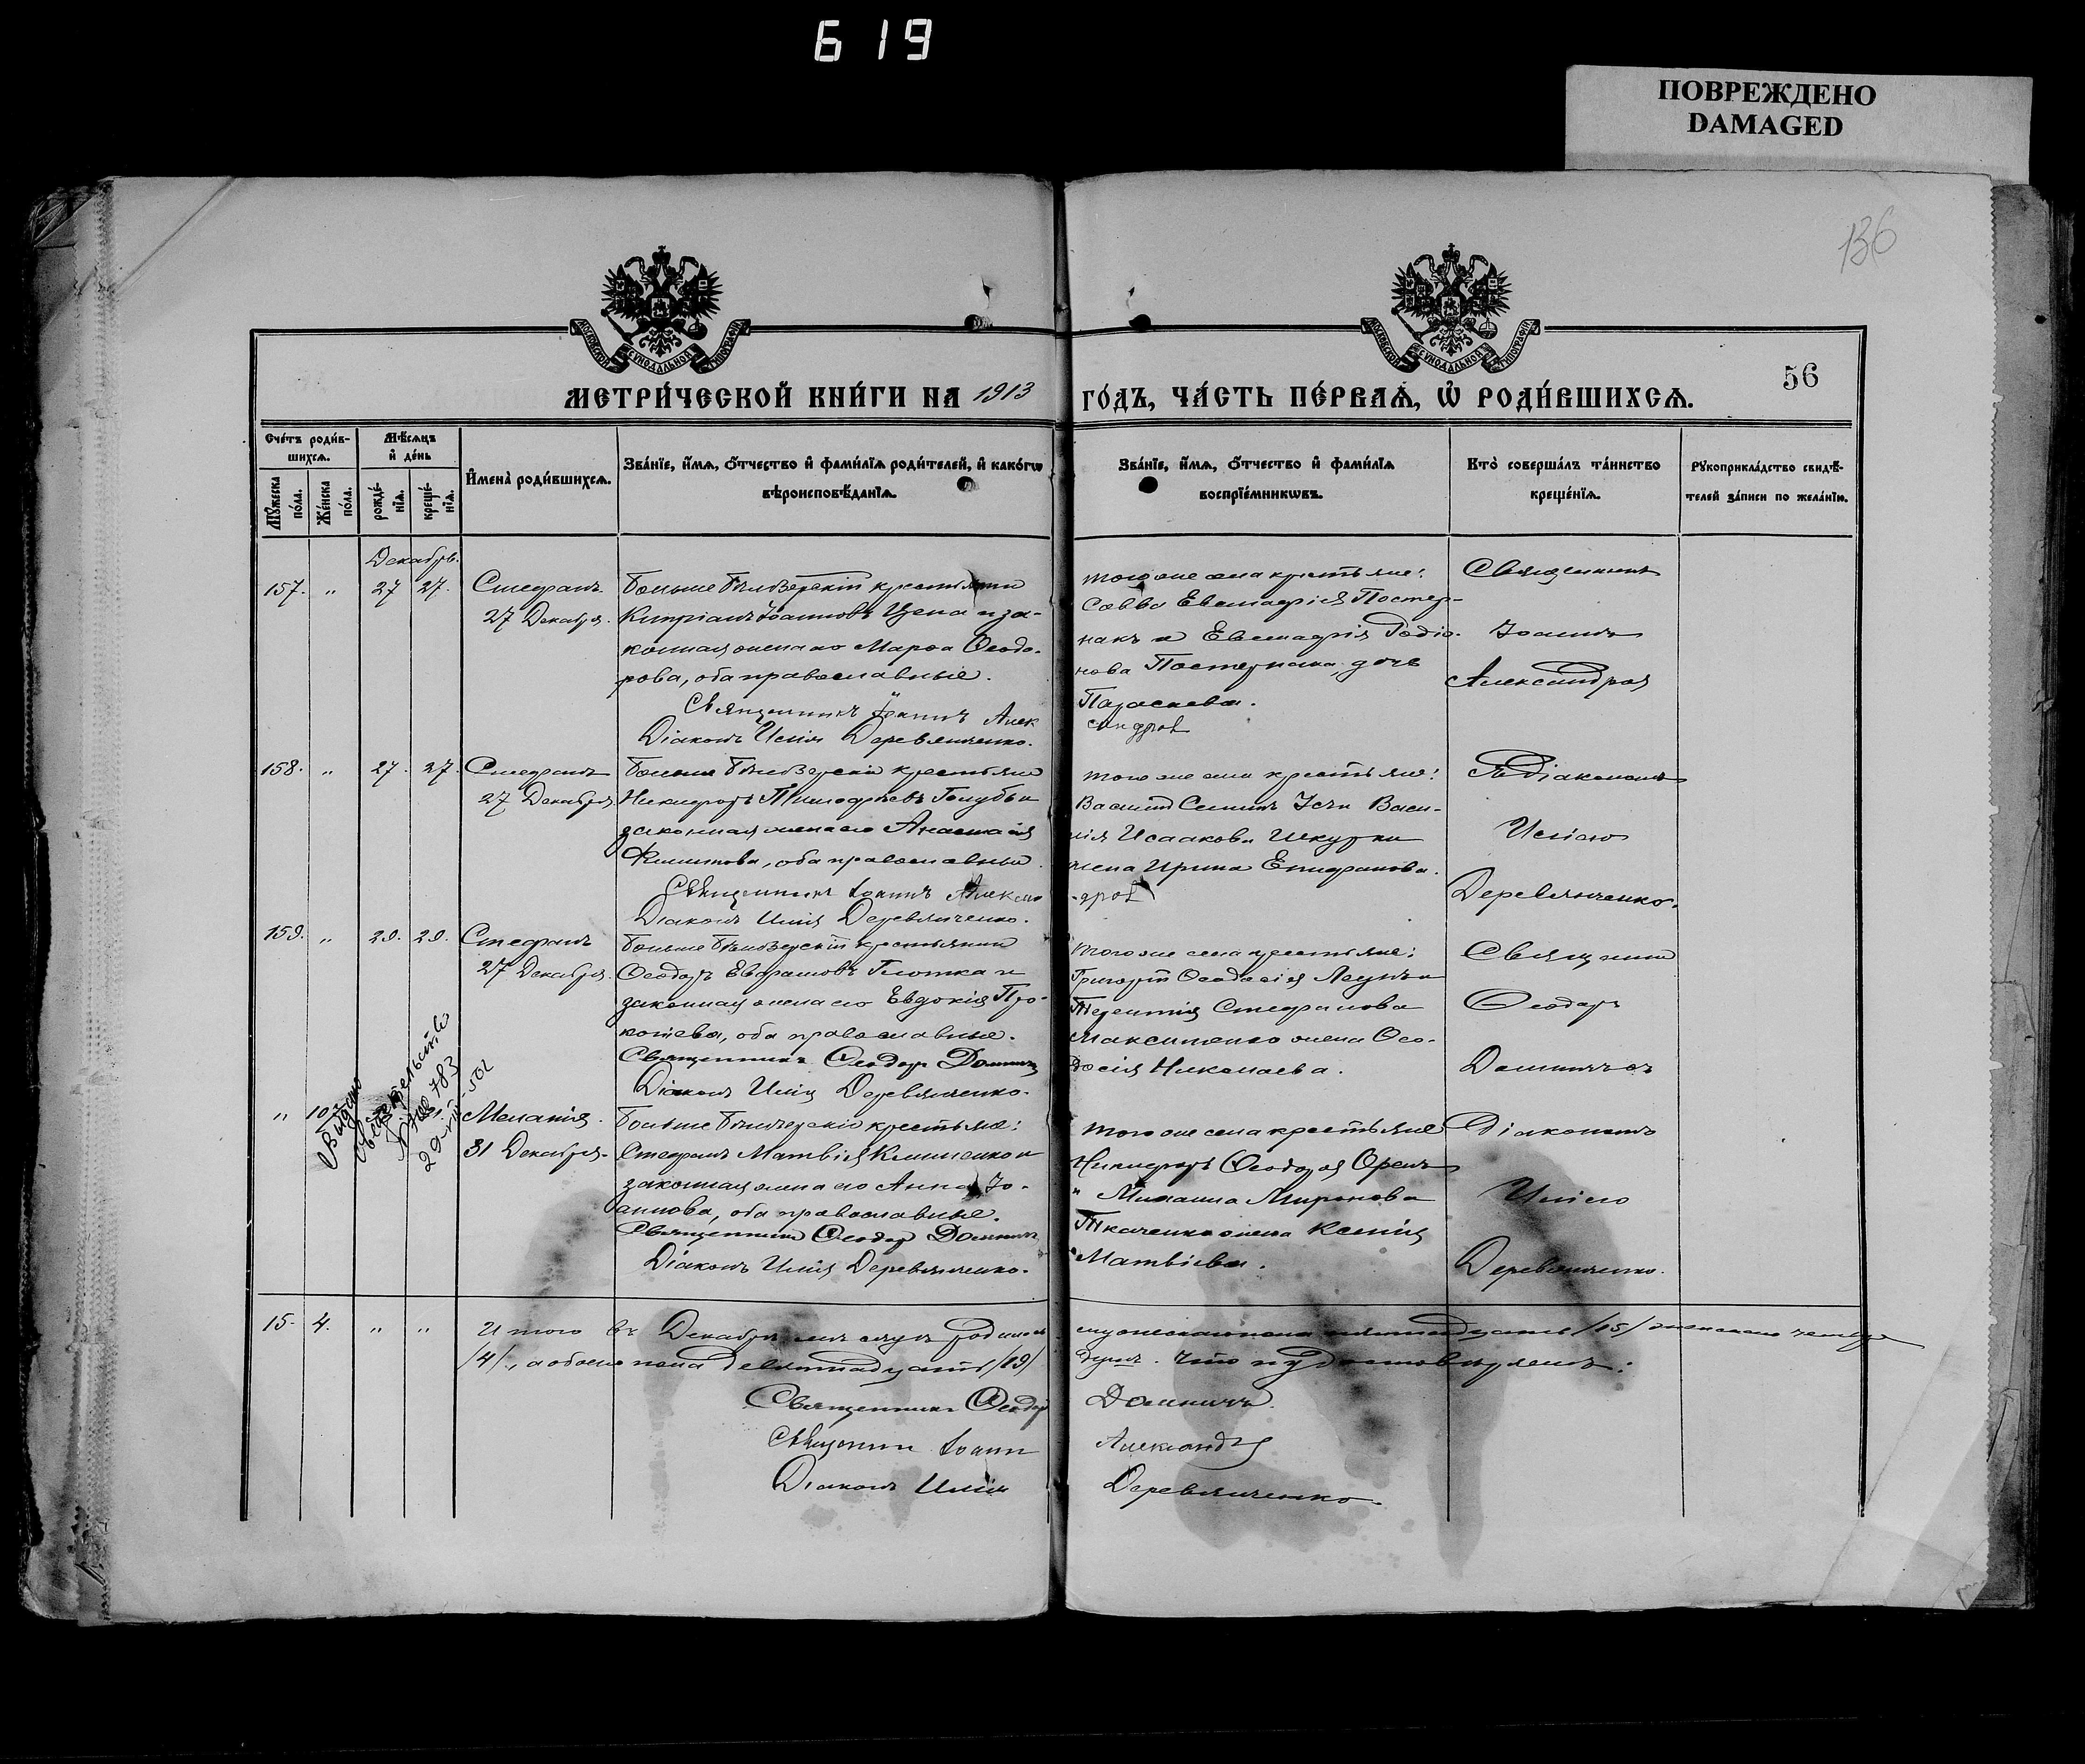 619
ПОВРЕЖДЕНО
DAMAGED
136
56
МОСКОВСКОЙ СѴНОДАЛЬНОЙ ТИПОГРАФІИ
МОСКОВСКОЙ СѴНОДАЛЬНОЙ ТИПОГРАФІИ
МЕТРИ́ЧЕСКОЙ КНИ́ГИ НА 1913 ГО́ДЪ, ЧА́СТЬ ПЕ́РВАѦ, Ѡ҆ РОДИ́ВШИХСѦ.
Сче́тъ роди́в-
шихсѧ.
Мѣ́сѧцъ
и҆ де́нь
Мꙋ́жеска по́ла.
Же́нска по́ла.
рожде́-
нїѧ.
креще́-
нїѧ.
И҆мена̀ роди́вшихсѧ.
Зва́нїе, и҆́мѧ, ѻ҆́тчество и҆ фами́лїѧ роди́телей, и҆ како́гѡ
вѣроисповѣ́данїѧ.
Зва́нїе, и҆́мѧ, ѻ҆́тчество и҆ фами́лїѧ
воспрїе́мникѡвъ.
Кто̀ соверша́лъ та́инство
креще́нїѧ.
Рꙋкоприкла́дство свидѣ́-
телей за́писи по жела́нїю.
Декабрь.
157. " 27 27. Стефанъ
27 Декабря.
Больше Бѣлозерскій крестьянинъ
Кипріанъ Іоанновъ Цепа и за-
конная жена его Марѳа Ѳеодо-
рова, оба православные.
Священникъ Іоаннъ Алек
сандров
Діаконъ Илія Деревянченко.
тогоже села крестьяне:
Савва Евстафіев Постер-
накъ и Евстафія Родіо-
нова Постернака, дочь
Параскева.
Священникъ
Іоаннъ
Александров
158. " 27. 27. Стефанъ
27 Декабря
Больше Бѣлозерскіе крестьяне
Никифоръ Тимофѣевъ Голубь и
законная жена его Анастасія
Филиппова, оба православные.
Священникъ Іоаннъ Александров
Діаконъ Илія Деревянченко.
того же села крестьяне:
Василія Исаакова Шкурки
жена Ирина Епифанова.
Діакономъ
Иліею
Деревянченко.
159. " 29. 29. Стефанъ
27 Декабря.
Больше Бѣлозерскій крестьянинъ
Ѳеодоръ Евфимовъ Глотка и
законная жена его Евдокія Про-
копіева, оба православные.
Священникъ Ѳеодоръ Доминич
Діаконъ Илія Деревянченко.
тогоже села крестьяне:
Терентія Стефанова
Максименко жена Ѳео-
досія Николаева.
Священникъ
Ѳеодоръ
Доминичъ
" 107
Выдано
свидетельство
№ 783
Меланія.
31 Декабря.
Больше Бѣлозерскіе крестьяне:
Стефанъ Матвіев Клименко и
законная жена его Анна Іо-
аннова, оба православные.
Священникъ Ѳеодоръ Доминич
Діаконъ Илія Деревянченко.
тогоже села крестьяне
Никифоръ Ѳеодоров Орелъ
и Михаила Миронова
Ткаченко жена Ксенія
Матвіева.
Діакономъ
Иліею
Деревянченко.
15. 4. " " Итого въ Декабрѣ мѣсяцѣ родилось мужескаго пола пятнадцать /15/ женскаго четыре
/4/, а обоего пола девятнадцать /19/ душъ. Что и удостовѣряемъ:
Священникъ Ѳеодоръ Доминичъ
Священникъ Іоаннъ Александров
Діаконъ Илія Деревянченко.